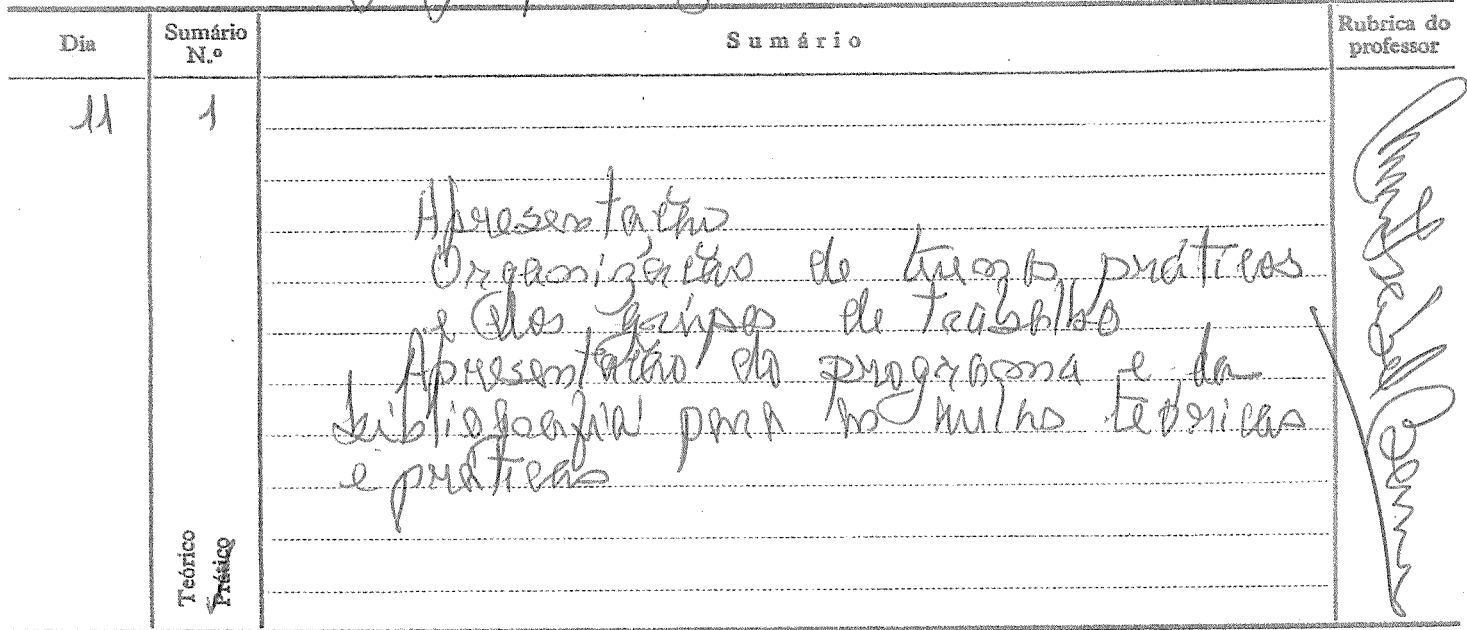 Dia
Sumário N.º
Sumário
Rubrica do professor
11
1
Apresentação
Organização de turmas práticas
e dos grupos de trabalho
Apresentação do programa e da
bibliografia para as aulas teóricas
e práticas
Teórico
Prático